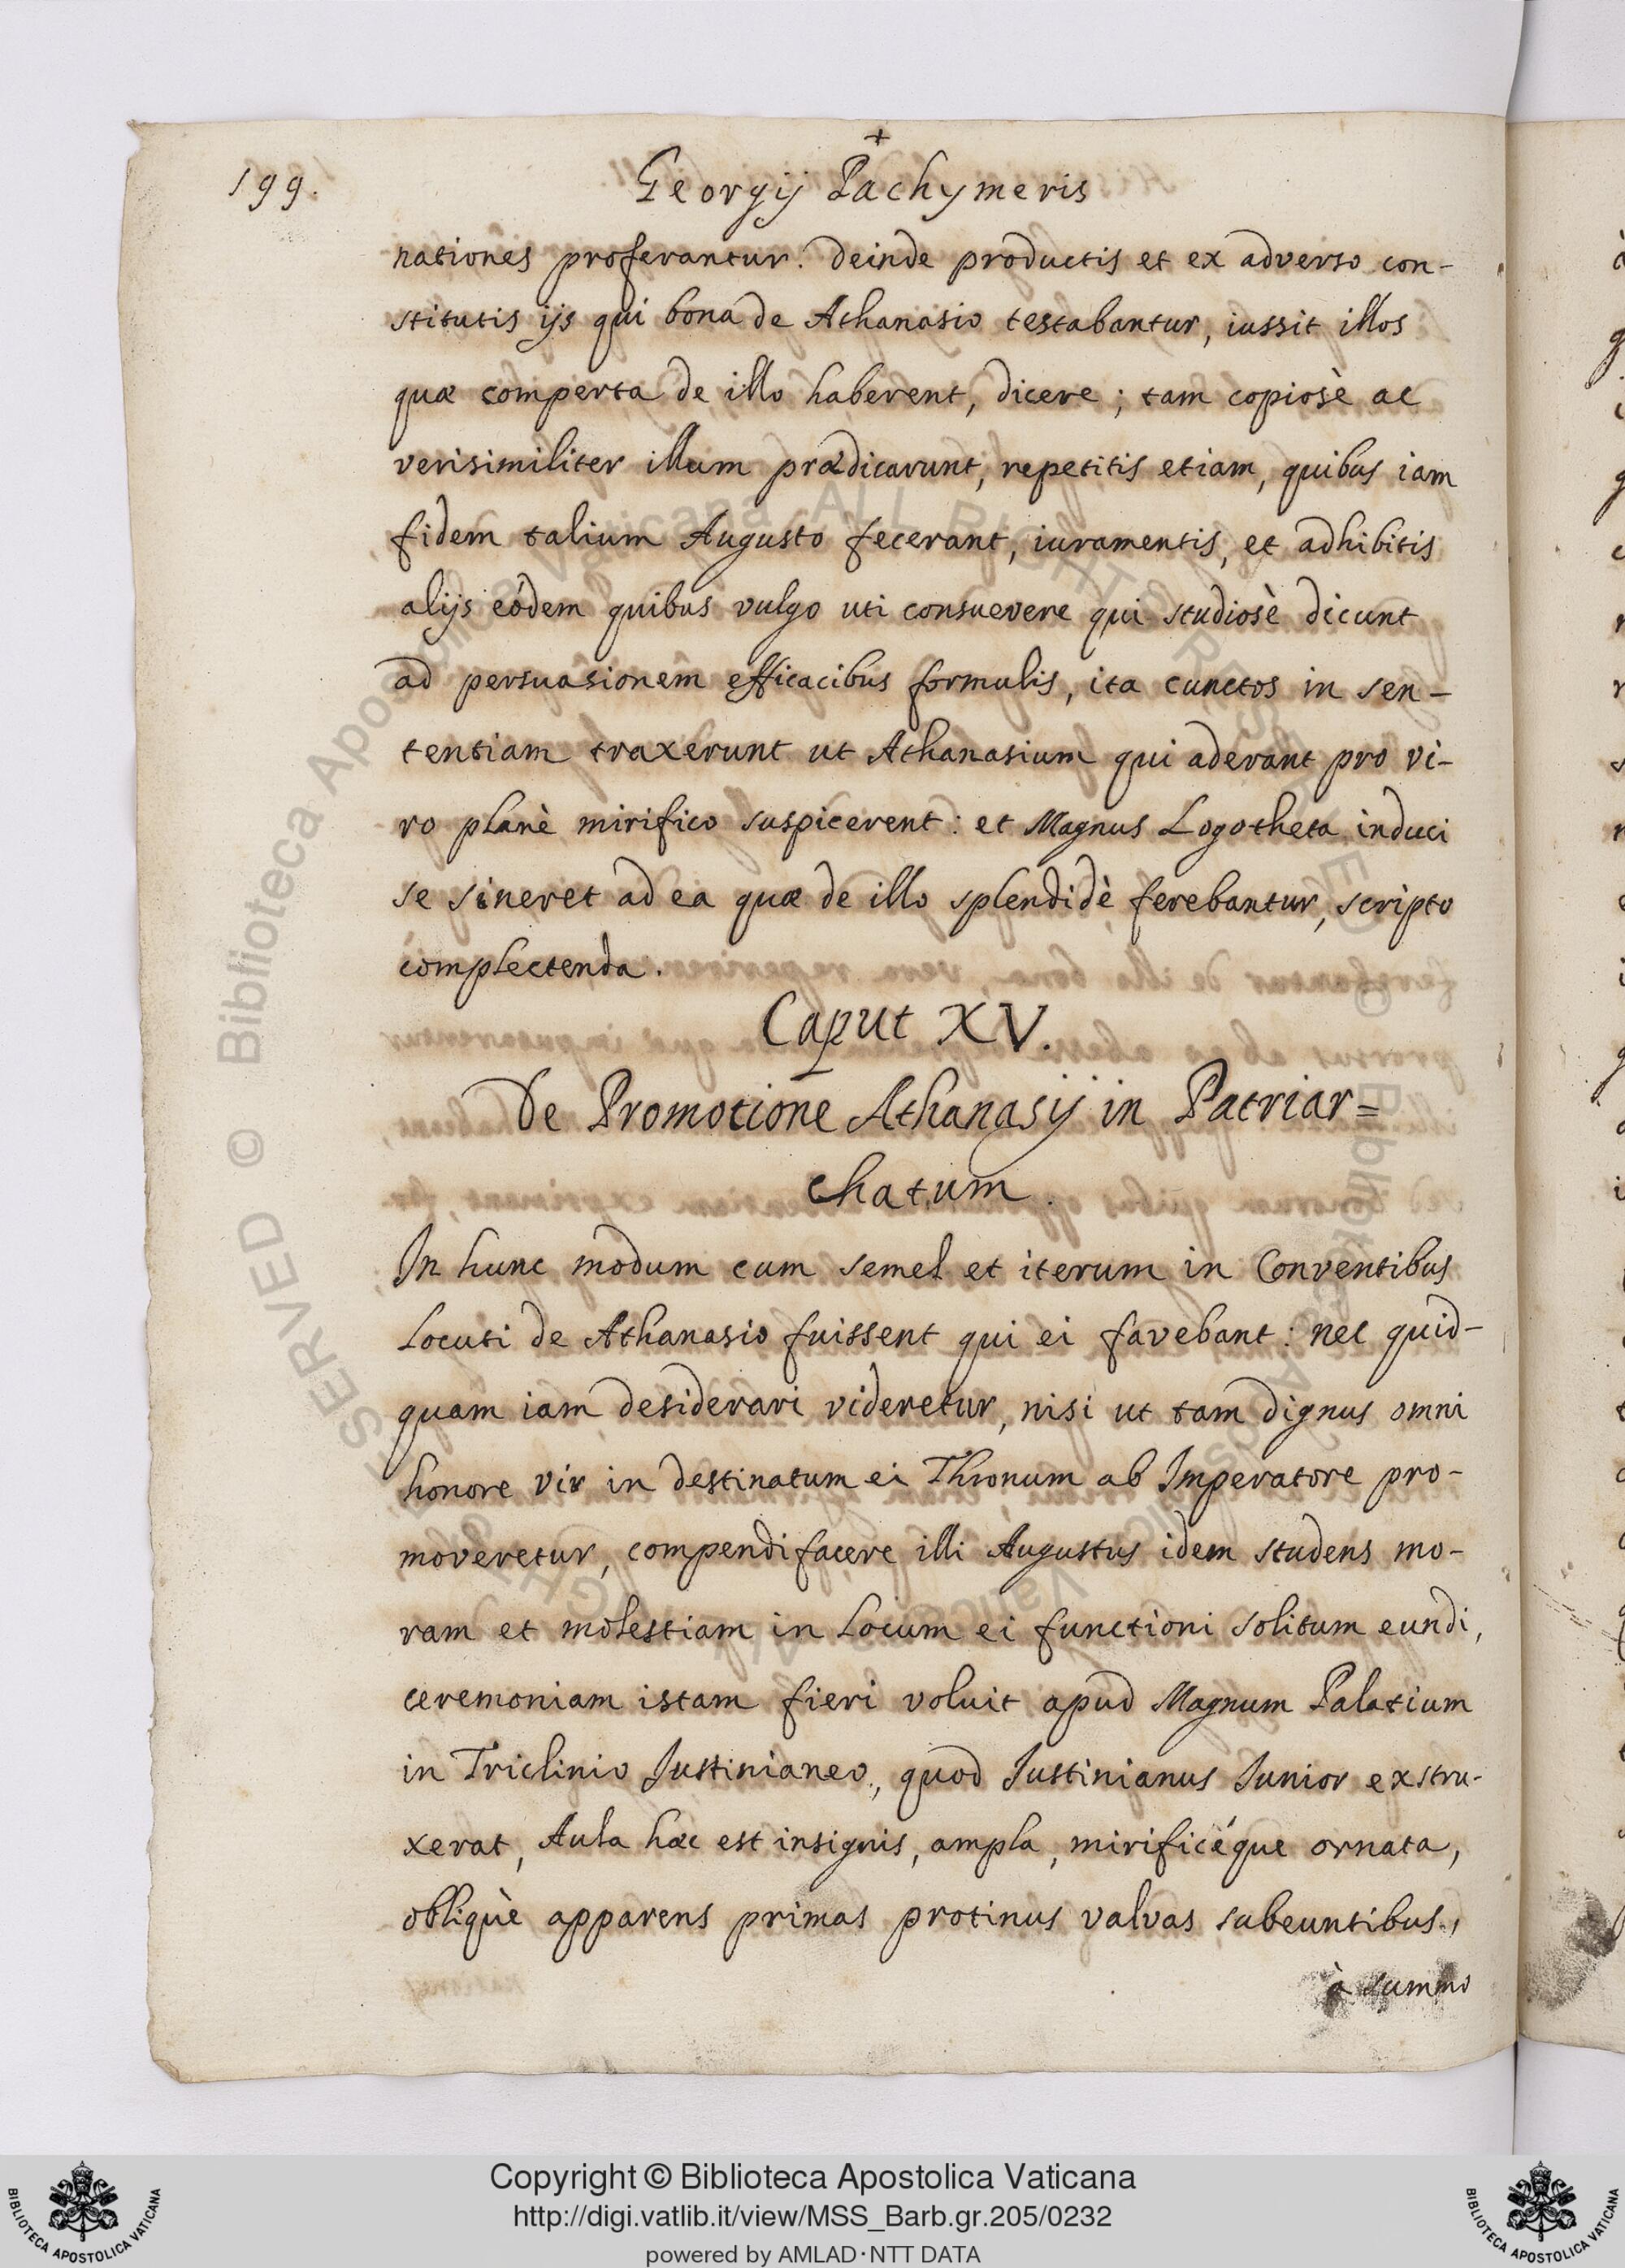 +
199.
Georgij Pachymeris
nationes proferantur. Deinde productis et ex adverso con-
stitutis ijs qui bona de Athanasio testabantur, iussit illos
quæ comperta de illo haberent, dicere; tam copiosè ac
verisimiliter illum prædicarunt, repetitis etiam, quibus iam
fidem talium Augusto fecerant, iuramentis, et adhibitis
alijs eódem quibus vulgo uti consuevere qui studiosè dicunt
ad persuasionem efficacibus formulis, ita cunctos in sen-
tentiam traxerunt ut Athanasium qui aderant pro vi-
ro planè mirifico suspicerent: et Magnus Logotheta induci
se sineret ad ea quæ de illo splendidè ferebantur, scripto
complectenda.
Caput XV.
De Promotione Athanasij in Patriar=
chatum.
In hunc modum cum semel et iterum in Conventibus
Locuti de Athanasio fuissent qui ei favebant: nec quid-
quam iam desiderari videretur, nisi ut tam dignus omni
honore vir in destinatum ei Thronum ab Imperatore pro-
moveretur, compendifacere illi Augustus idem studens mo-
ram et molestiam in Locum ei functioni solitum eundi,
ceremoniam istam fieri voluit apud Magnum Palatium
in Triclinio Justinianeo, quod Justinianus Junior exstru-
xerat, Aula hæc est insignis, ampla, mirificéque ornata,
obliquè apparens primas protinus valvas subeuntibus,
à summo
Copyright © Biblioteca Apostolica Vaticana
http://digi.vatlib.it/view/MSS_Barb.gr.205/0232
powered by AMLAD·NTT DATA
BIBLIOTECA APOSTOLICA VATICANA
BIBLIOTECA APOSTOLICA VATICANA